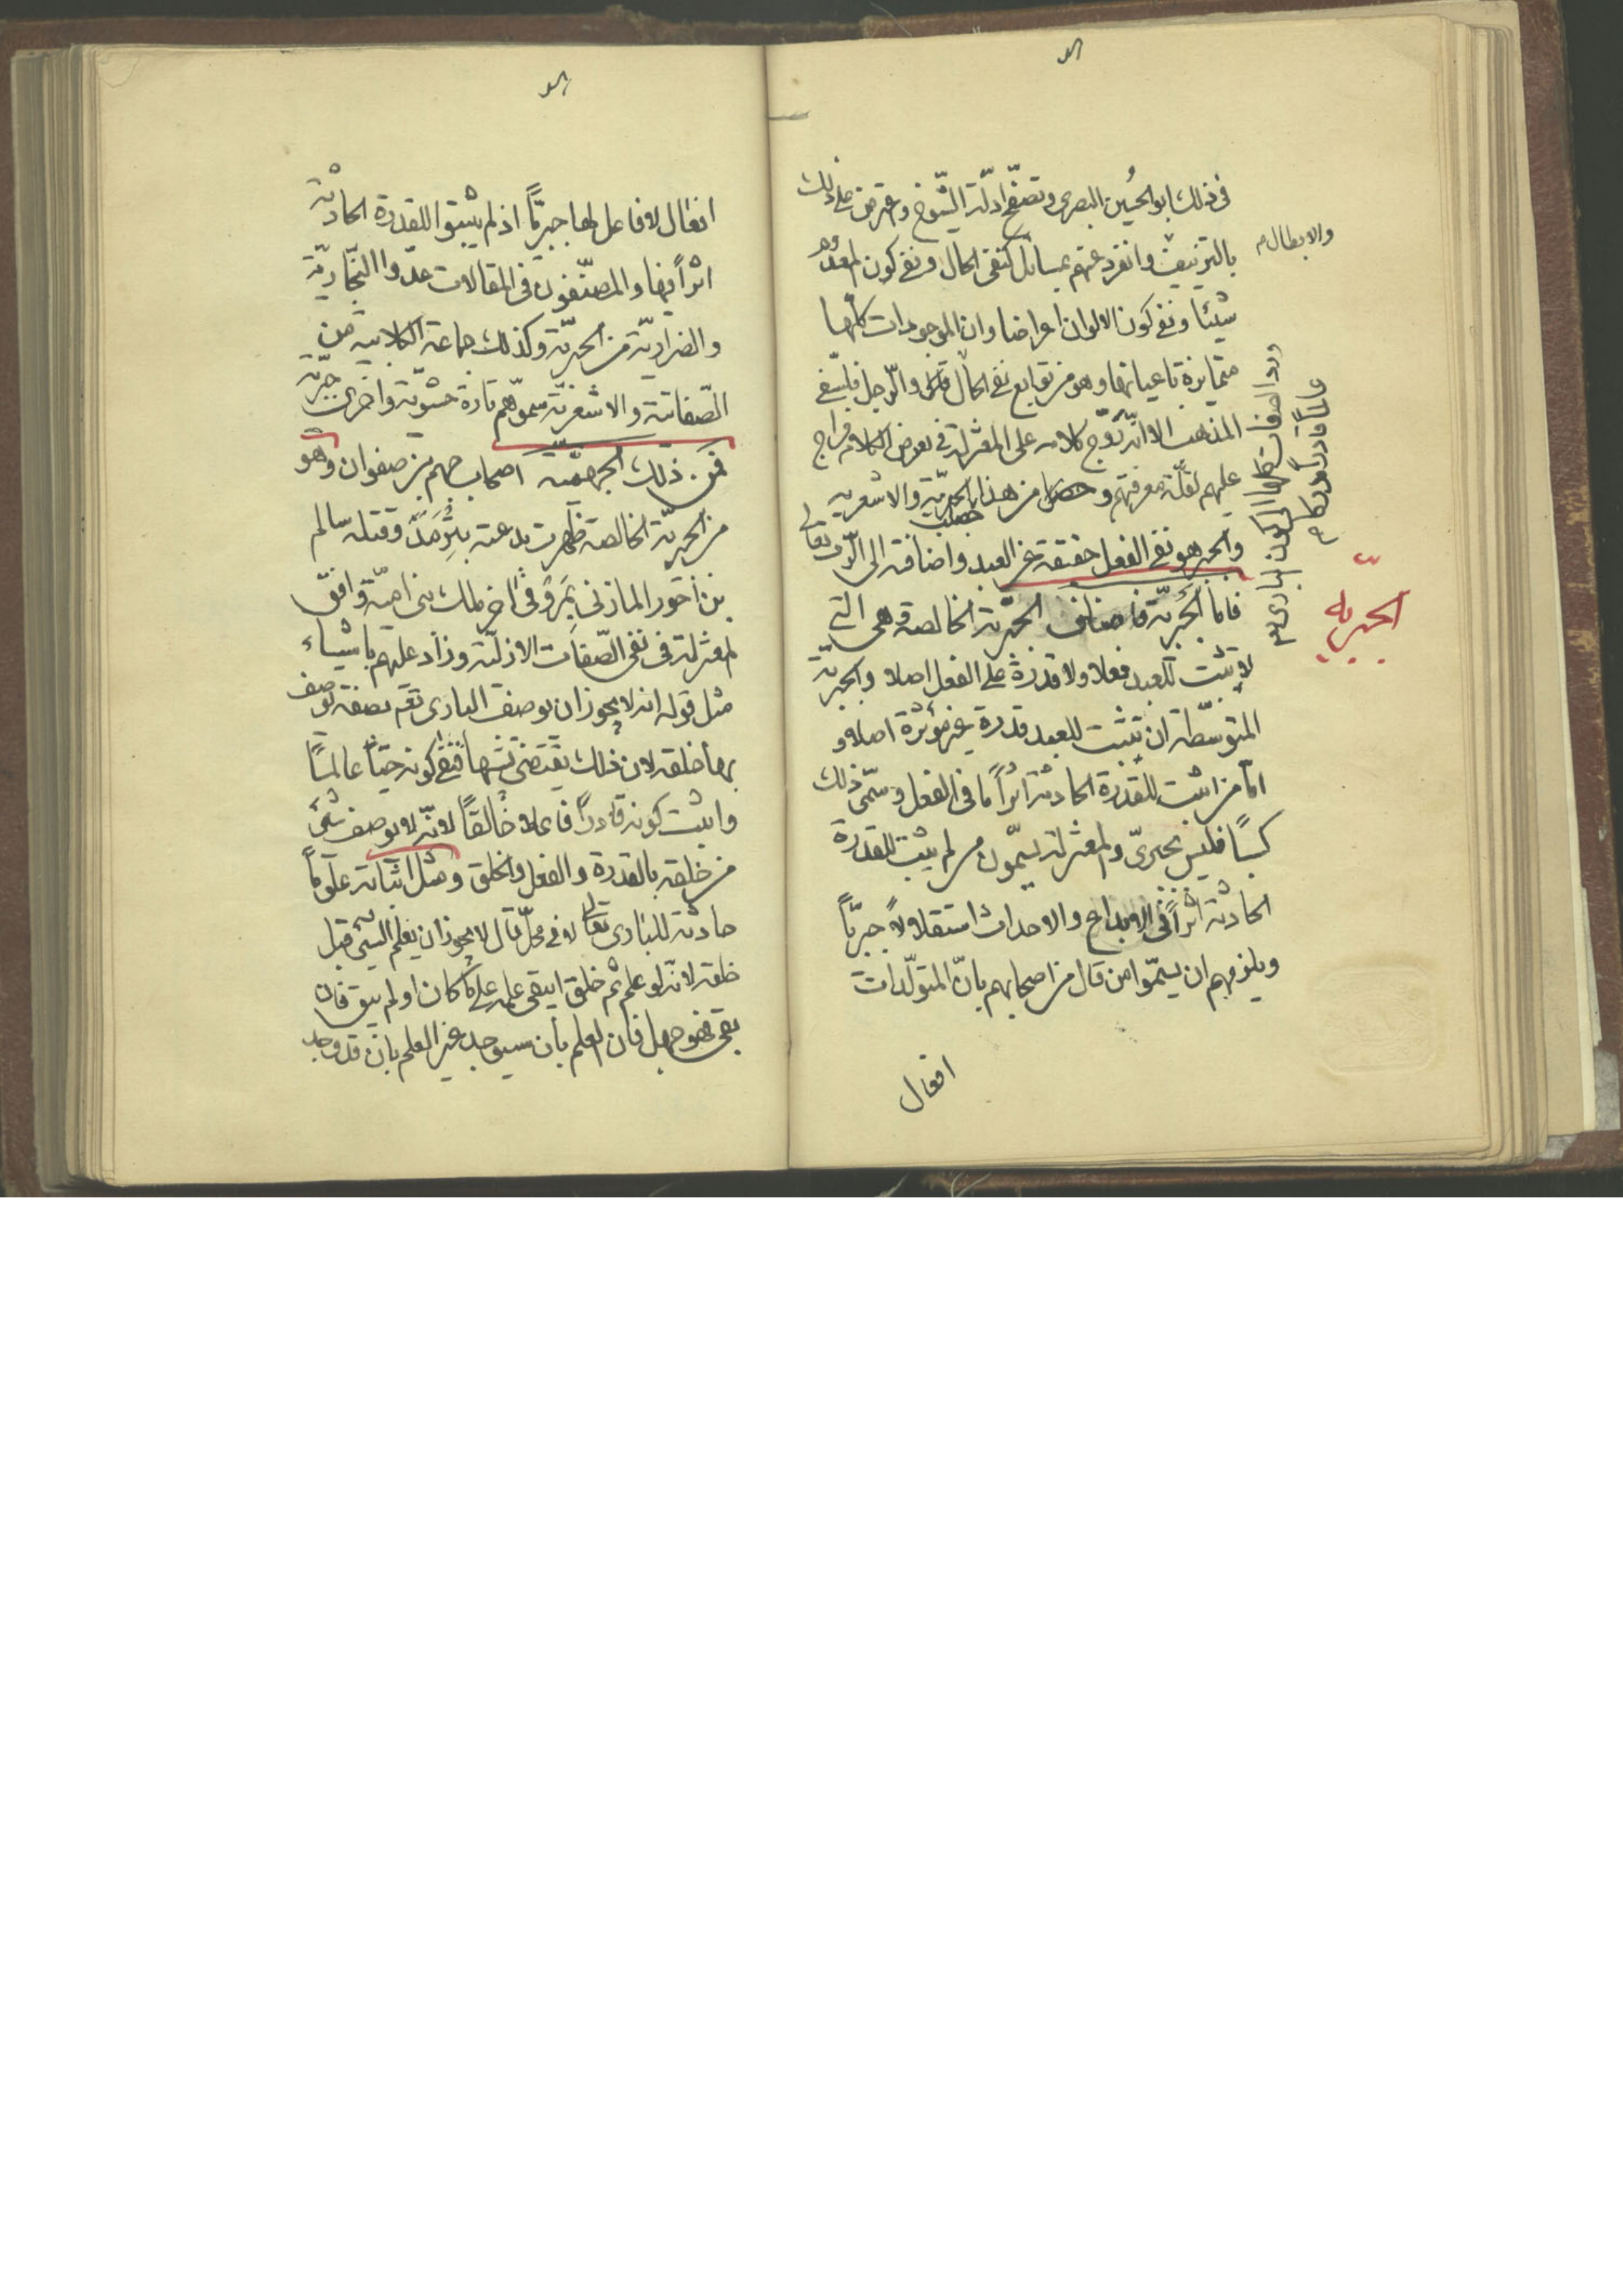 في ذلك ابو الحُسين البصرى وتصفّح ادلّة الشّيوخ واعترض على ذلك
بالتزييف وانفرد عنهم بمسائل كنفى الحال ونفى كون المعدوم
والابطال
شيئا ونفى كون الالوان اعراضا وان الموجودات كلّها
متمايزة باعيانها وهو من توابع نفى الحال والرّجل فلسفى
المذهب الا انّه روّج كلامه على المعتزلة فى معرض الكلام فراج
عليهم لقلّة معرفتهم
ورد الصفات كلها الى كون البارى
عالماً قادراً مدركا
الجبريه
من هذا الجبريّة والاشعرية
والجبر هو نفى الفعل حقيقة عن العبد واضافته الى الرّب تعالى
فاما الجَبريّة فاصناف الجبريّة الخالصة هى التى
لا يثبت للعبد فعلا ولا قدرة على الفعل اصلا والجبرية
المتوسّطة ان يثبت للعبد قدرة غير مؤثرة اصلا و
امّا من اثبت للقدرة الحادثة اثراً ما فى الفعل وسمّى ذلك
كسبًا فليس بجبرىّ والمعتزلة يسمّون من لم يثبت للقدرة
الحادثة اثراً فى الابداع والاحداث استقلالاً جبريّاً
ويلزمهم ان يسمّوا من قال من اصحابهم بانّ المتولّدات
افعال
افعال لا فاعل لها جبريّاً اذ لم يثبتوا للقدرة الحادثة
اثراً فيها والمصنّفون فى المقالات عدّوا النجّاريّة
والضرارية من الجبريّة وكذلك جماعة الكلابية من
الصّفاتية والاشعريّة سموهم تارة حشويّة واخرى جبريّة
فمن ذلك الجهميّة اصحاب جهم بن صفوان وهو
من الجبريّة الخالصة ظهرت بدعته بتِرْمذ وقتله سالم
بن احور المازنى بمَرو فى اخر ملك بنى اميّة وافق
المعتزلة فى نفى الصّفات الازليّة وزاد عليهم باشياء
مثل قوله انه لا يجوز ان يوصف البارى تعم بصفة يوصف
بها خلقه لان ذلك يقتضى تشبيها فنفى كونه حيّاً عالمًا
واثبت كونه قادراً فاعلا خالقًا لانّه لا يوصف شئ
من خلقه بالقدرة والفعل والخلق ومثل اثباته علوماً
حادثة للبارى تعالى لا فى محلّ قال لا يجوز ان يعلم الشئ قبل
خلقه لانّه لو علم ثم خلق ايبقى علمه على ما كان او لم يبق فان
بقى فهو جهل فان العلم بان سيوجد غير العلم بان قد وجد